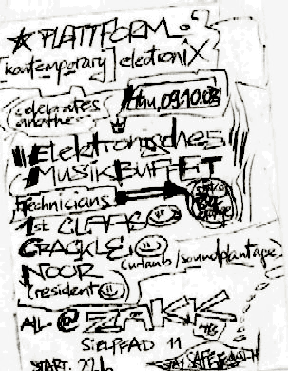 PLATTFORM.
kontemporary electroniX
celebrates
another
thu, 09.10.03
Elektronisches
MUSIKBUFFET
technicians
1st CLAAS
CRACKLE
(urlaub/soundplantage)
NOOR
(resident)
ALL @ ZAKK
START: 22h